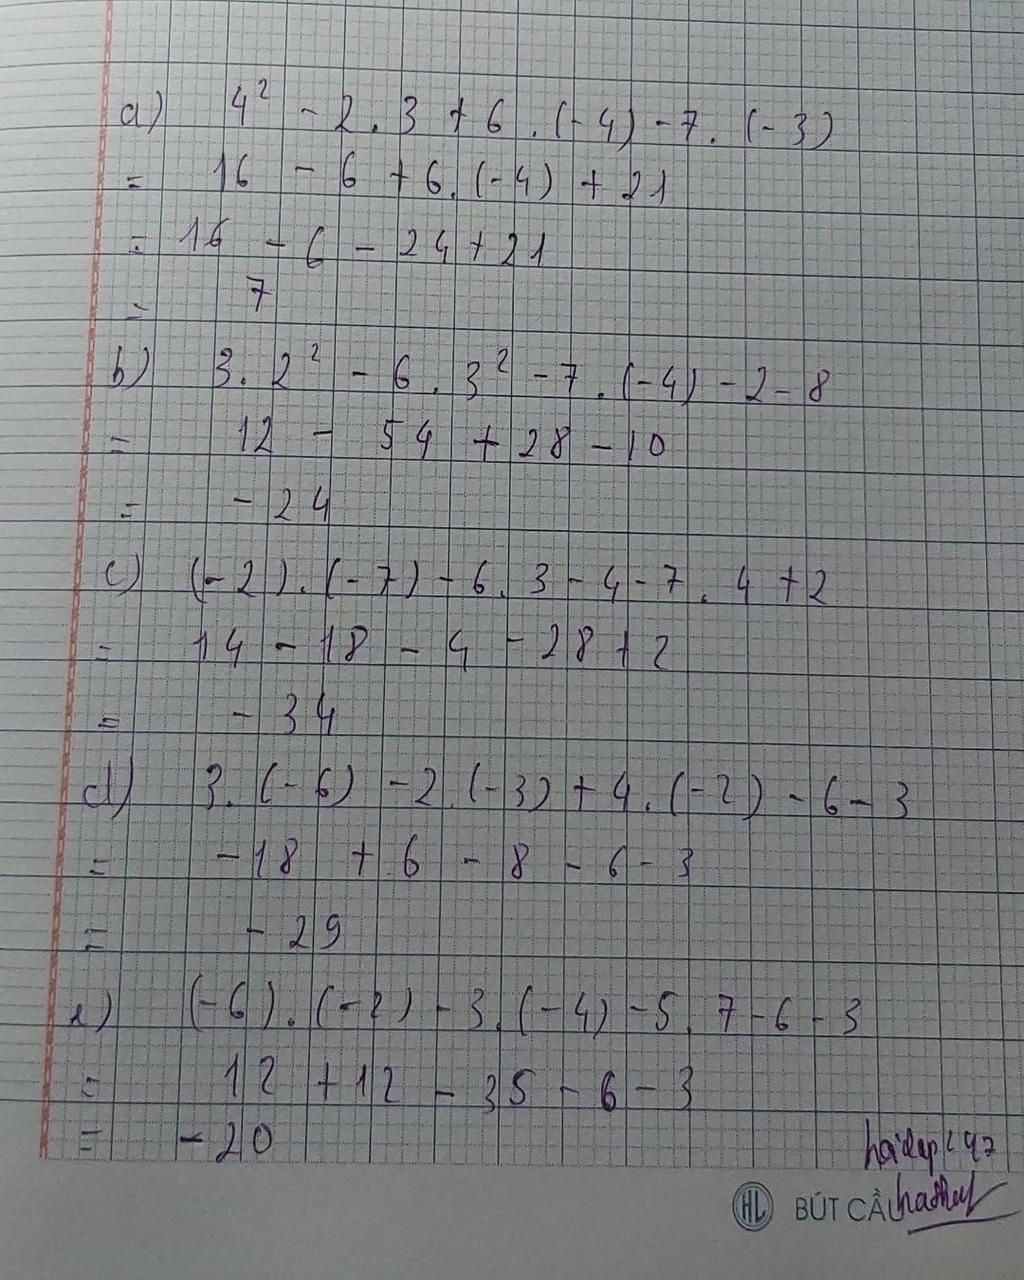 a) 4² - 2 . 3 + 6 . (-4) - 7 . (-3)
= 16 - 6 + 6 . (-4) + 21
= 16 - 6 - 24 + 21
= 7
b) 3 . 2² - 6 . 3² - 7 . (-4) - 2 - 8
= 12 - 54 + 28 - 10
= - 24
c) (-2) . (-7) - 6 . 3 - 4 - 7 . 4 + 2
= 14 - 18 - 4 - 28 + 2
= - 34
d) 3 . (-6) - 2 . (-3) + 4 . (-2) - 6 - 3
= -18 + 6 - 8 - 6 - 3
= - 29
e) (-6) . (-2) - 3 . (-4) - 5 . 7 - 6 - 3
= 12 + 12 - 35 - 6 - 3
= - 20
HL BÚT CẦ